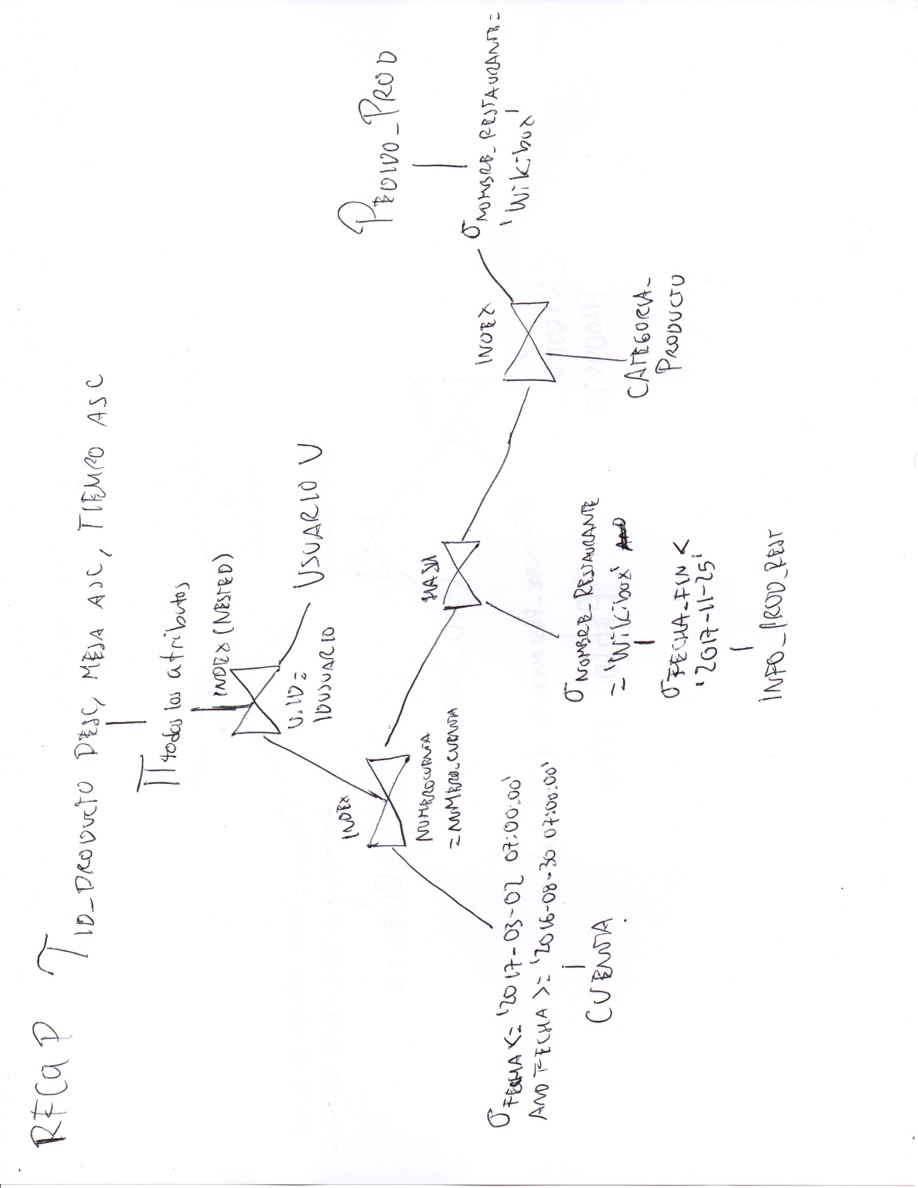 RFC9 P
τ ID_PRODUCTO DESC, MESA ASC, TIEMPO ASC
π todos los atributos
INDEX (NESTED)
U.ID =
IDUSUARIO
USUARIO U
INDEX
NUMEROCUENTA
= NUMERO_CUENTA
σ FECHA <= '2017-03-02 07:00:00'
AND FECHA >= '2016-08-30 07:00:00'
CUENTA
HASH
σ NOMBRE_RESTAURANTE
= 'Wikibox'
σ FECHA_FIN <
'2017-11-25'
INFO_PROD_REST
INDEX
CATEGORIA_
PRODUCTO
σ NOMBRE_RESTAURANTE =
'Wikibox'
PEDIDO_PROD